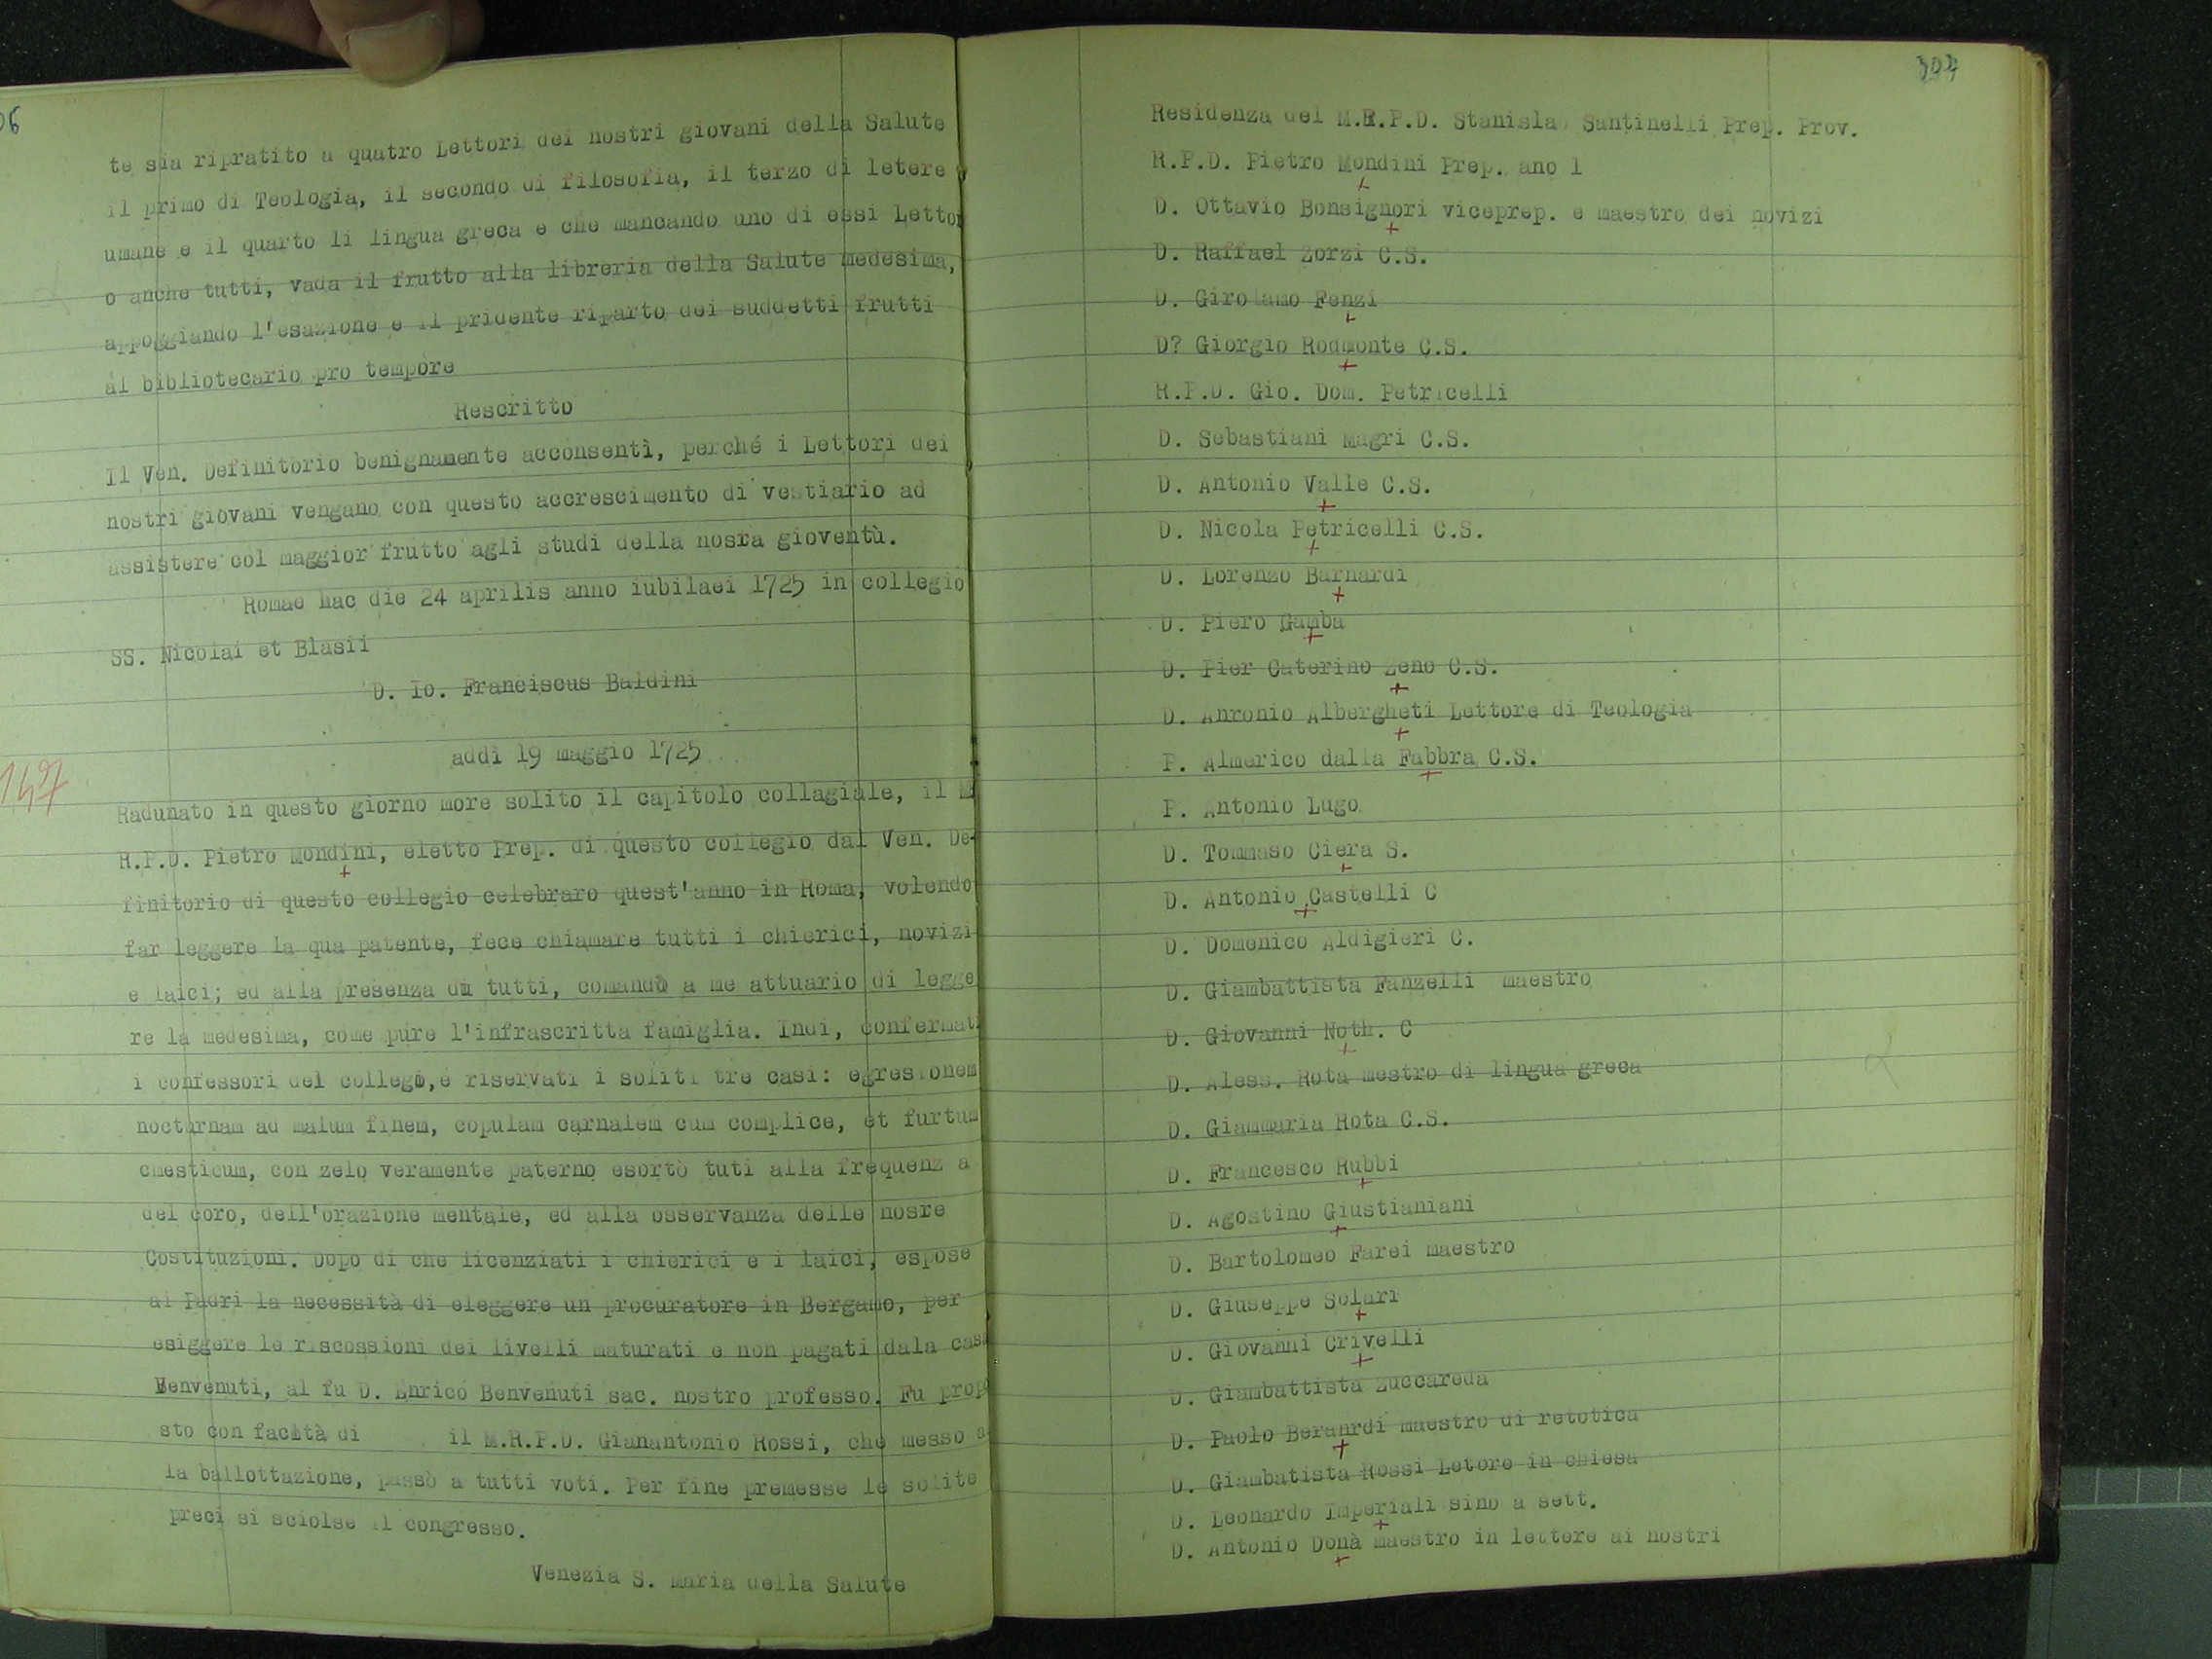 06
te sia ripratito a quatro Lettori dei nostri giovani della Salute
il primo di Teologia, il secondo di filosofia, il terzo di letere
umane e il quarto li lingua greca e che mancando uno di essi Lettor
o anche tutti, vada il frutto alla libreria della Salute medesima,
appoggiando l'esazione e il pridente riparto dei suddetti frutti
al bibliotecario pro tempore
Rescritto
Il Ven. Definitorio benignamente acconsentì, perché i Lettori dei
nostri giovani vengano con questo accrescimento di vestiario ad
assistere col maggior frutto agli studi della nosra gioventù.
Romae hac die 24 aprilis anno iubilaei 1725 in collegio
SS. Nicolai et Blasii
D. Io. Franciscus Baldini
addì 19 maggio 1725
147
Radunato in questo giorno more solito il capitolo collagiale, il M
R.P.D. Pietro Mondini, eletto Prep. di questo collegio dal Ven. De-
finitorio di questo collegio celebraro quest'anno in Roma, volendo
far leggere la qua patente, fece chiamare tutti i chierici, novizi
e laici; ed alla presenza di tutti, comandò a me attuario di legge
re la medesima, come pure l'infrascritta famiglia. Indi, confermati
i confessori del collego,e riservati i soliti tre casi: egresionem
nocturnam ad malum finem, copulam carnalem cum complice, et furtum
cmesticum, con zelo veramente paterno esortò tuti alla frequenz a
del coro, dell'orazione mentale, ed alla osservanza delle nosre
Costituzioni. Dopo di che licenziati i chierici e i laici, espose
ai Padri la necessità di eleggere un procuratore in Bergamo, per
esiggere le riscossioni dei livelli maturati e non pagati dala casa
Benvenuti, al fu D. Enrico Benvenuti sac. nostro professo. Fu propo
sto con facltà di il M.R.P.D. Gianantonio Rossi, che messo a
la ballottazione, passò a tutti voti. Per fine premesse le solite
preci si sciolse il congresso.
Venezia S. Maria della Salute
307
Residenza del M.R.P.D. Stanislao Santinelli Prep. Prov.
R.P.D. Pietro Mondini Prep. ano 1
D. Ottavio Bonsignori viceprep. e maestro dei novizi
D. Raffael Zorzi C.S.
D. Girolamo Fenzi
D? Giorgio Rodmonte C.S.
R.P.D. Gio. Dom. Petricelli
D. Sebastiani Magri C.S.
D. Antonio Valle C.S.
D. Nicola Petricelli C.S.
D. Lorenzo Barnardi
D. Piero Gamba
D. Pier Caterino Zeno C.S.
D. Anronio Albergheti Lettore di Teologia
P. Almerico dalla Fabbra C.S.
P. Antonio Lugo
D. Tommaso Ciera S.
D. Antonio Castelli C
D. Domenico Aldigieri C.
D. Giambattista Fanzelli maestro
D. Giovanni Noth. C
D. Aless. Rota mestro di lingua greca
D. Giammaria Rota C.S.
D. Francesco Rubbi
D. Agostino Giustianiani
D. Bartolomeo Farei maestro
D. Giuseppe Solari
D. Giovanni Crivelli
D. Giambattista Zuccareda
D. Paolo Beranrdi maestro di retotica
D. Giambatista Rossi Letore in chiesa
D. Leonardo Imperiali sino a sett.
D. Antonio Donà maestro in lettere ai nostri